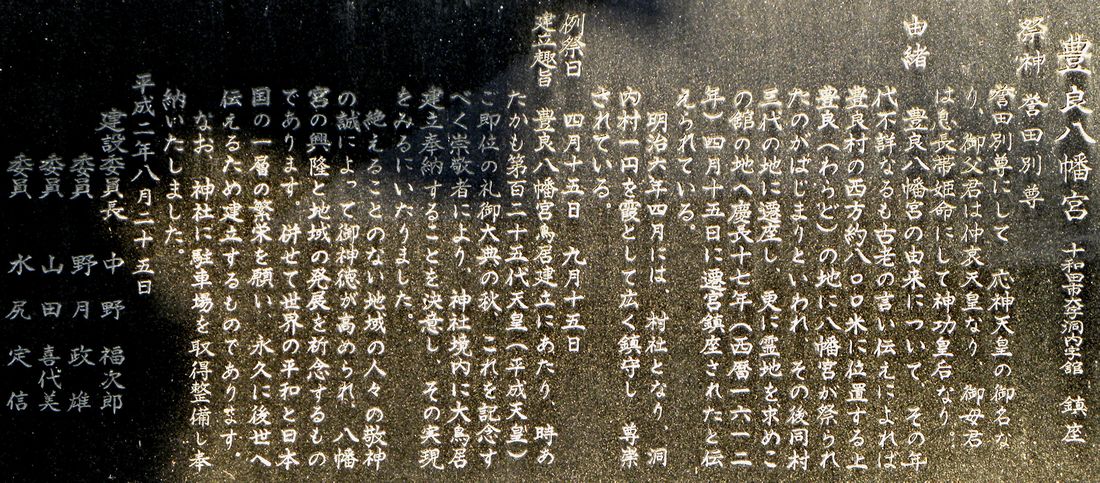 豊良八幡宮 十和田市大字洞内字館 鎮座
祭神 誉田別尊
誉田別尊にして 応神天皇の御名な
り、御父君は仲哀天皇なり 御母君
は息長帯姫命にして神功皇后なり。
由緒 豊良八幡宮の由来について、その年
代不詳なるも古老の言い伝えによれば
豊良村の西方約八〇〇米に位置する上
豊良(へわらと)の地に八幡宮が祭られ
たのがはじまりといわれ、その後同村
三代の地に遷座し、更に霊地を求めこ
の館の地へ慶長十七年(西暦一六一二
年)四月十五日に遷宮鎮座されたと伝
えられている。
明治六年四月には 村社となり、洞
内村一円を霞として広く鎮守し 尊崇
されている。
例祭日 四月十五日 九月十五日
建立趣旨 豊良八幡宮鳥居建立にあたり、時あ
たかも第百二十五代天皇(平成天皇)
ご即位の礼御大典の秋、これを記念す
べく崇敬者により、神社境内に大鳥居
建立奉納することを決意し その実現
をみるにいたりました。
絶えることのない地域の人々の敬神
の誠によって御神徳が高められ、八幡
宮の興隆と地域の発展を祈念するもの
であります。併せて世界の平和と日本
国の一層の繁栄を願い、永久に後世へ
伝えるため建立するものであります。
なお、神社に駐車場を取得整備し奉
納いたしました。
平成二年八月二十五日
建設委員長 中野福次郎
委員 野月政雄
委員 山田喜代美
委員 水尻定信